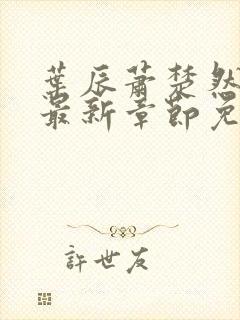 葉辰蕭楚然
最新章節免
許世友